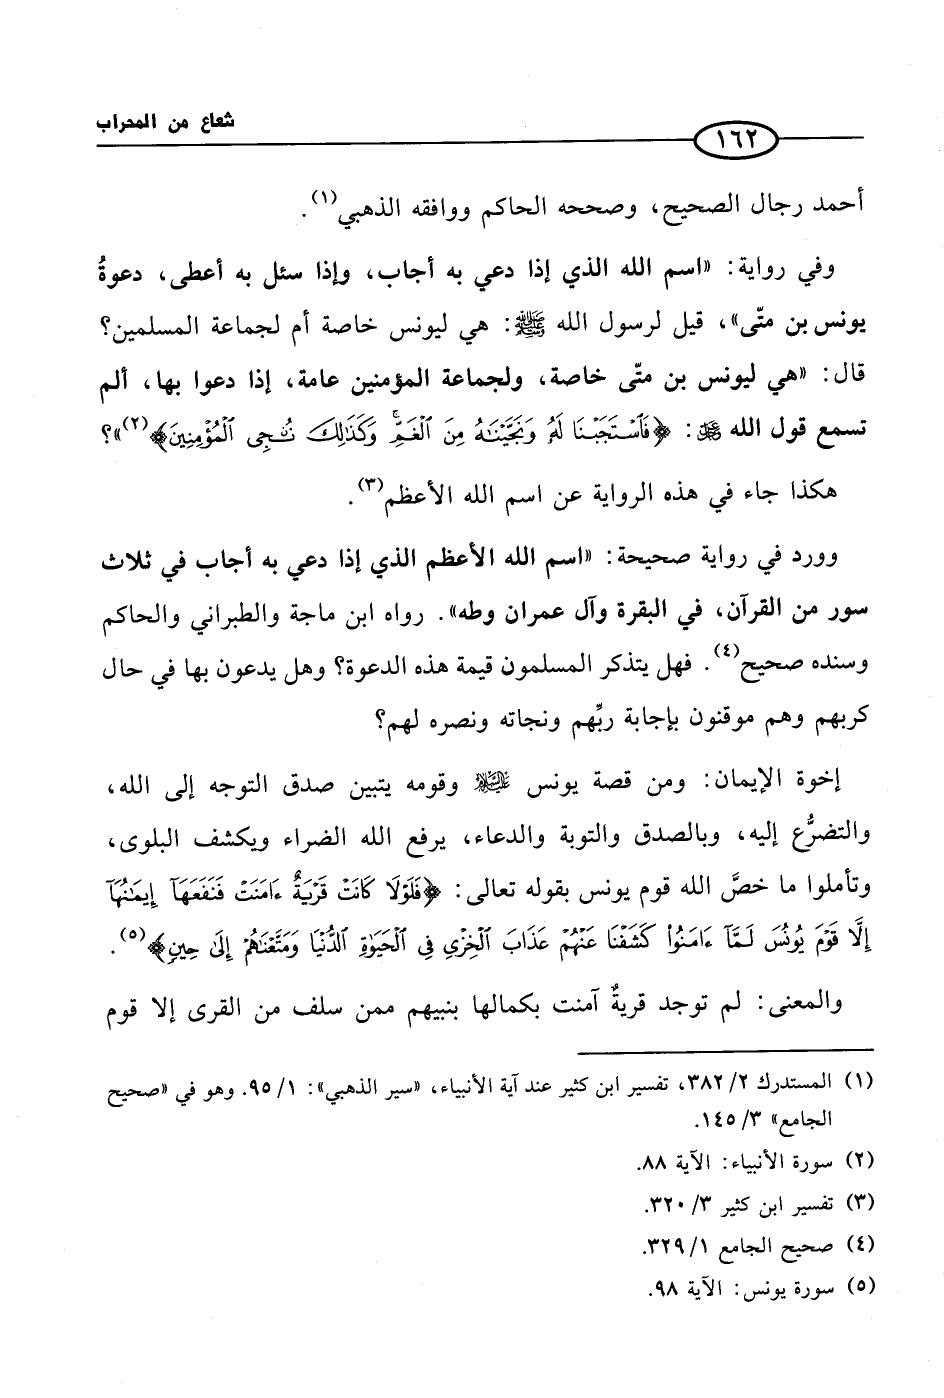 شعاع من المحراب
١٦٢
أحمد رجال الصحيح، وصححه الحاكم ووافقه الذهبي(١).
وفي رواية: «اسم الله الذي إذا دعي به أجاب، وإذا سئل به أعطى، دعوةُ
يونس بن متّى»، قيل لرسول الله ﷺ: هي ليونس خاصة أم لجماعة المسلمين؟
قال: «هي ليونس بن متّى خاصة، ولجماعة المؤمنين عامة، إذا دعوا بها، ألم
تسمع قول الله ﷻ: ﴿فَٱسْتَجَبْنَا لَهُۥ وَنَجَّيْنَٰهُ مِنَ ٱلْغَمِّ ۚ وَكَذَٰلِكَ نُۨجِى ٱلْمُؤْمِنِينَ﴾(٢)»؟
هكذا جاء في هذه الرواية عن اسم الله الأعظم(٣).
وورد في رواية صحيحة: «اسم الله الأعظم الذي إذا دعي به أجاب في ثلاث
سور من القرآن، في البقرة وآل عمران وطه». رواه ابن ماجة والطبراني والحاكم
وسنده صحيح(٤). فهل يتذكر المسلمون قيمة هذه الدعوة؟ وهل يدعون بها في حال
كربهم وهم موقنون بإجابة ربِّهم ونجاته ونصره لهم؟
إخوة الإيمان: ومن قصة يونس عليه السلام وقومه يتبين صدق التوجه إلى الله،
والتضرُّع إليه، وبالصدق والتوبة والدعاء، يرفع الله الضراء ويكشف البلوى،
وتأملوا ما خصَّ الله قوم يونس بقوله تعالى: ﴿فَلَوْلَا كَانَتْ قَرْيَةٌ ءَامَنَتْ فَنَفَعَهَآ إِيمَٰنُهَآ
إِلَّا قَوْمَ يُونُسَ لَمَّآ ءَامَنُوا۟ كَشَفْنَا عَنْهُمْ عَذَابَ ٱلْخِزْىِ فِى ٱلْحَيَوٰةِ ٱلدُّنْيَا وَمَتَّعْنَٰهُمْ إِلَىٰ حِينٍ﴾(٥).
والمعنى: لم توجد قريةٌ آمنت بكمالها بنبيهم ممن سلف من القرى إلا قوم
(١) المستدرك ٢/ ٣٨٢، تفسير ابن كثير عند آية الأنبياء، «سير الذهبي»: ١/ ٩٥. وهو في «صحيح
الجامع» ٣/ ١٤٥.
(٢) سورة الأنبياء: الآية ٨٨.
(٣) تفسير ابن كثير ٣/ ٣٢٠.
(٤) صحيح الجامع ١/ ٣٢٩.
(٥) سورة يونس: الآية ٩٨.